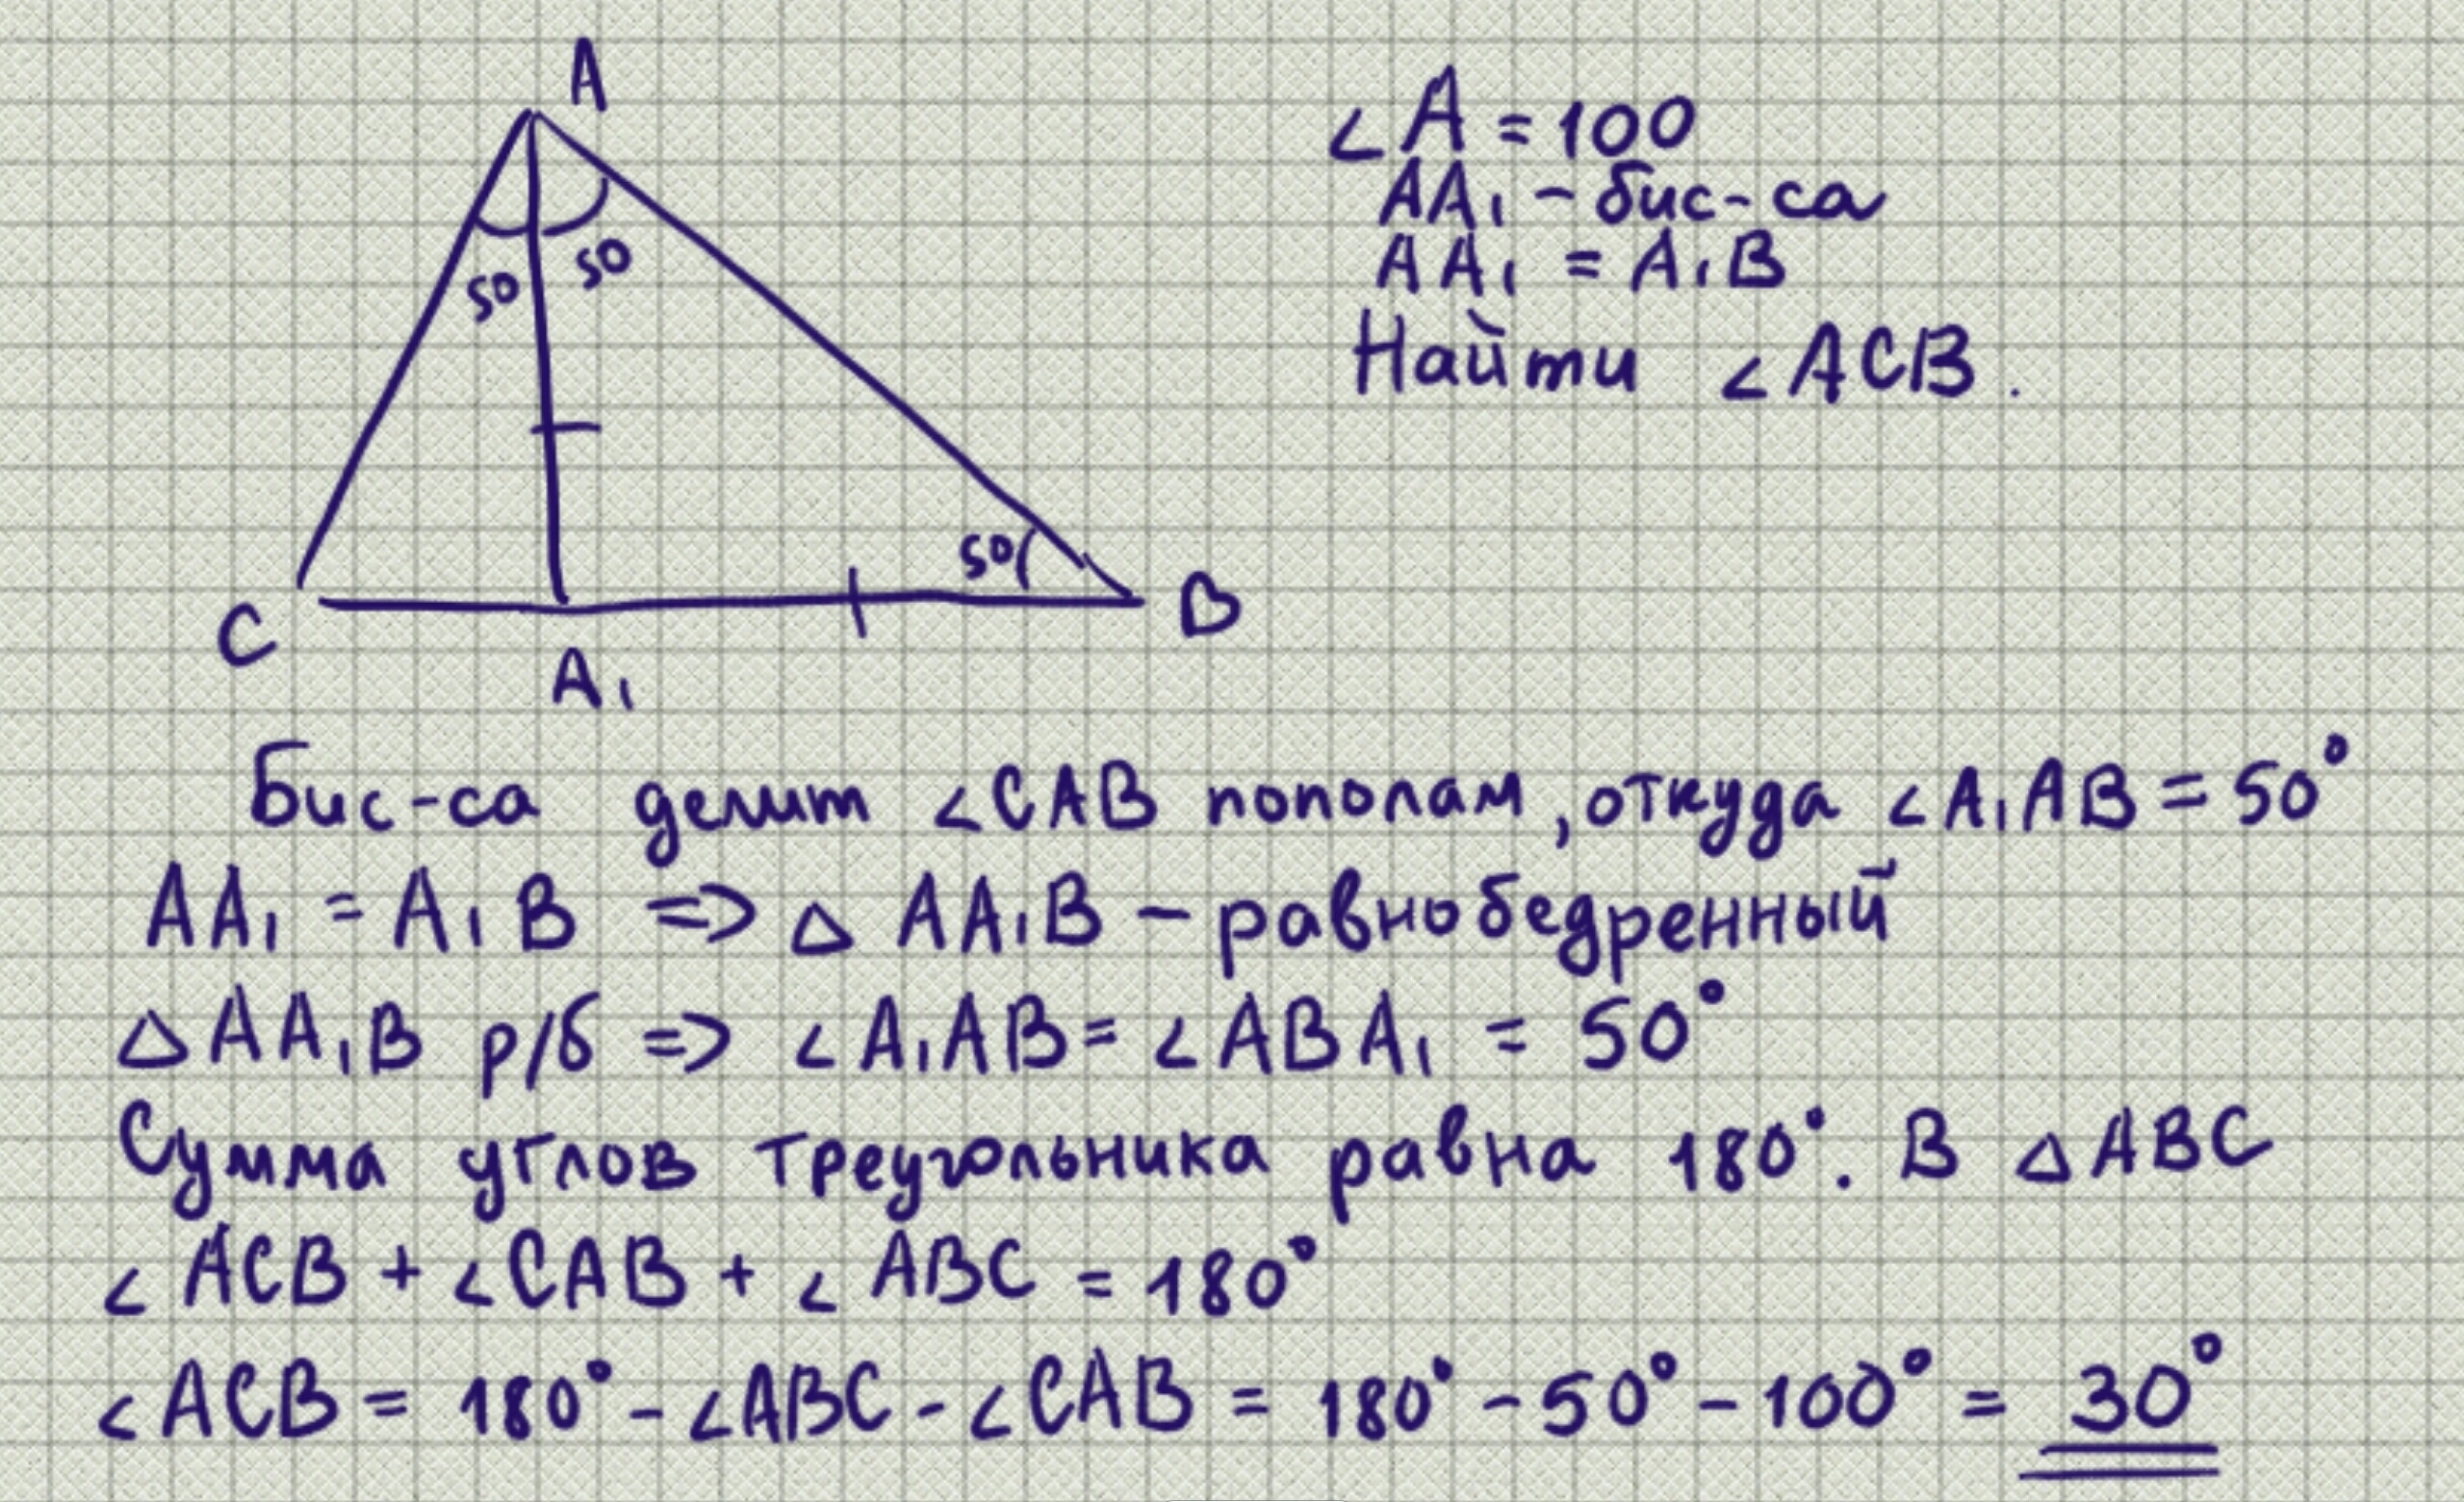 A
50
50
50
C
B
A₁
∠A = 100
AA₁ - бис-са
AA₁ = A₁B
Найти ∠ACB.
Бис-са делит ∠CAB пополам, откуда ∠A₁AB = 50°
AA₁ = A₁B => △ AA₁B - равнобедренный
△AA₁B р/б => ∠A₁AB = ∠ABA₁ = 50°
Сумма углов треугольника равна 180°. В △ABC
∠ACB + ∠CAB + ∠ABC = 180°
∠ACB = 180° - ∠ABC - ∠CAB = 180° - 50° - 100° = 30°